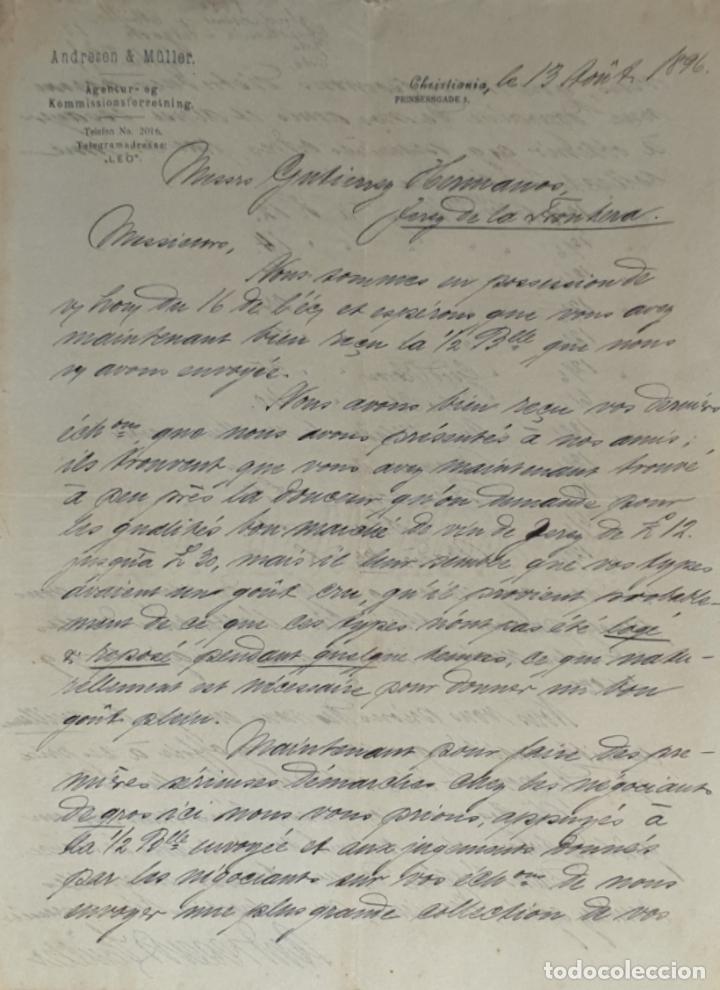 Andresen & Müller.
Agentur- og
Kommissionsforretning.
Telefon No. 2016.
Telegramadresse:
„LEO“.
Christiania, le 13 Août 1896.
PRINSENSGADE
Messrs Gutierrez Hermanos,
Jerez de la Frontera.
Messieurs,
Nous sommes en possession de
du 16 de et espérons que vous avez
maintenant bien reçu la 1/2 Blle que nous
vs avons envoyée.
Nous avons bien reçu vos derniers
échons que nous avons présentés à nos amis;
ils trouvent que vous avez maintenant trouvé
à peu près la douceur qu'on demande pour
les qualités bon marché de vin de Jerez de £ 12.
jusqu'à £ 30, mais il leur semble que vos types
avaient un goût cru, qu'il provient probable-
ment de ce que ces types n'ont pas été logé
& reposé pendant quelque temps, ce que natu-
rellement est nécessaire pour donner un bon
goût plein.
Maintenant pour faire des pre-
mières sérieuses démarches chez les négociants
de gros ici nous vous prions, appuyés à
la 1/2 Blle envoyée et aux jugements donnés
par les négociants sur vos échons de nous
envoyer une plus grande collection de vos
todocoleccion.net